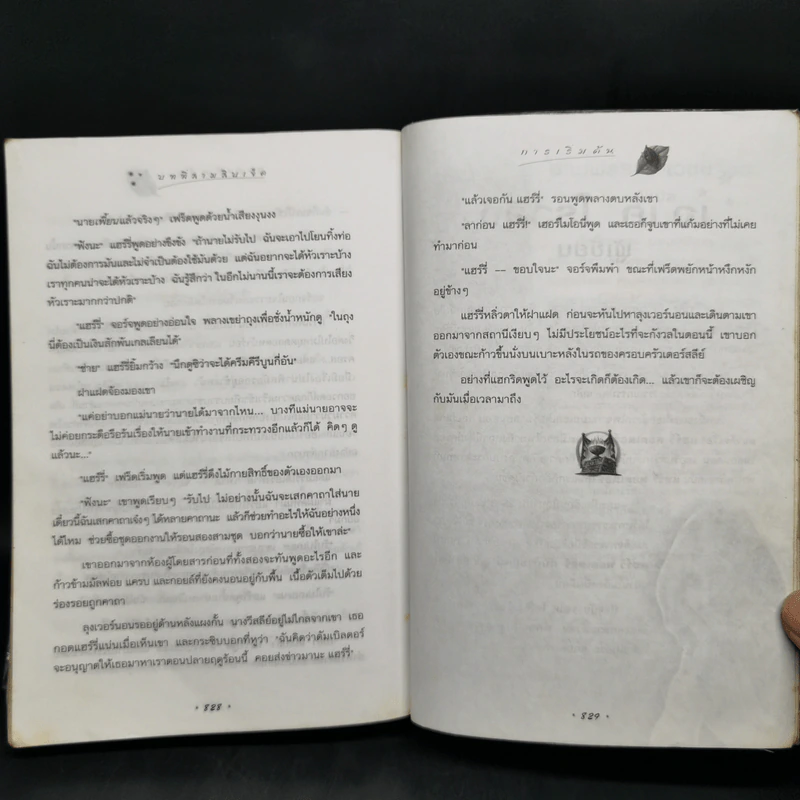 บทที่สามสิบเจ็ด
"นายเพี้ยนแล้วจริงๆ" เฟร็ดพูดด้วยน้ำเสียงงุนงง
"ฟังนะ" แฮร์รี่พูดอย่างขึงขัง "ถ้านายไม่รับไป ฉันจะเอาไปโยนทิ้งท่อ
ฉันไม่ต้องการมันและไม่จำเป็นต้องใช้มันด้วย แต่ฉันอยากจะได้หัวเราะบ้าง
เราทุกคนน่าจะได้หัวเราะบ้าง ฉันรู้สึกว่า ในอีกไม่นานนี้เราจะต้องการเสียง
หัวเราะมากกว่าปกติ"
"แฮร์รี่" จอร์จพูดอย่างอ่อนใจ พลางเขย่าถุงเพื่อชั่งน้ำหนักดู "ในถุง
นี่ต้องเป็นเงินสักพันเกลเลียนได้"
"ช่าย" แฮร์รี่ยิ้มกว้าง "นึกดูซิว่าจะได้ครีมคีรีบูนกี่อัน"
ฝาแฝดจ้องมองเขา
"แค่อย่าบอกแม่นายว่านายได้มาจากไหน... บางทีแม่นายอาจจะ
ไม่ค่อยกระตือรือร้นเรื่องให้นายเข้าทำงานที่กระทรวงอีกแล้วก็ได้ คิดๆ ดู
แล้วนะ..."
"แฮร์รี่" เฟร็ดเริ่มพูด แต่แฮร์รี่ดึงไม้กายสิทธิ์ของตัวเองออกมา
"ฟังนะ" เขาพูดเรียบๆ "รับไป ไม่อย่างนั้นฉันจะเสกคาถาใส่นาย
เดี๋ยวนี้ฉันเสกคาถาเจ๋งๆ ได้หลายคาถานะ แล้วก็ช่วยทำอะไรให้ฉันอย่างหนึ่ง
ได้ไหม ช่วยซื้อชุดออกงานให้รอนสองสามชุด บอกว่านายซื้อให้เขาล่ะ"
เขาออกมาจากห้องผู้โดยสารก่อนที่ทั้งสองจะทันพูดอะไรอีก และ
ก้าวข้ามมัลฟอย แครบ และกอยล์ที่ยังคงนอนอยู่กับพื้น เนื้อตัวเต็มไปด้วย
ร่องรอยถูกคาถา
ลุงเวอร์นอนรออยู่ด้านหลังแผงกั้น นางวีสลีย์อยู่ไม่ไกลจากเขา เธอ
กอดแฮร์รี่แน่นเมื่อเห็นเขา และกระซิบบอกที่หูว่า "ฉันคิดว่าดัมเบิลดอร์
จะอนุญาตให้เธอมาหาเราตอนปลายฤดูร้อนนี้ คอยส่งข่าวมานะ แฮร์รี่"
• 828 •
การเริ่มต้น
"แล้วเจอกัน แฮร์รี่" รอนพูดพลางตบหลังเขา
"ลาก่อน แฮร์รี่!" เฮอร์ไมโอนี่พูด และเธอก็จูบเขาที่แก้มอย่างที่ไม่เคย
ทำมาก่อน
"แฮร์รี่ -- ขอบใจนะ" จอร์จพึมพำ ขณะที่เฟร็ดพยักหน้าหงึกหงัก
อยู่ข้างๆ
แฮร์รี่หลิ่วตาให้ฝาแฝด ก่อนจะหันไปหาลุงเวอร์นอนและเดินตามเขา
ออกมาจากสถานีเงียบๆ ไม่มีประโยชน์อะไรที่จะกังวลในตอนนี้ เขาบอก
ตัวเองขณะก้าวขึ้นนั่งบนเบาะหลังในรถของครอบครัวเดอร์สลีย์
อย่างที่แฮกริดพูดไว้ อะไรจะเกิดก็ต้องเกิด... แล้วเขาก็จะต้องเผชิญ
กับมันเมื่อเวลามาถึง
• 829 •